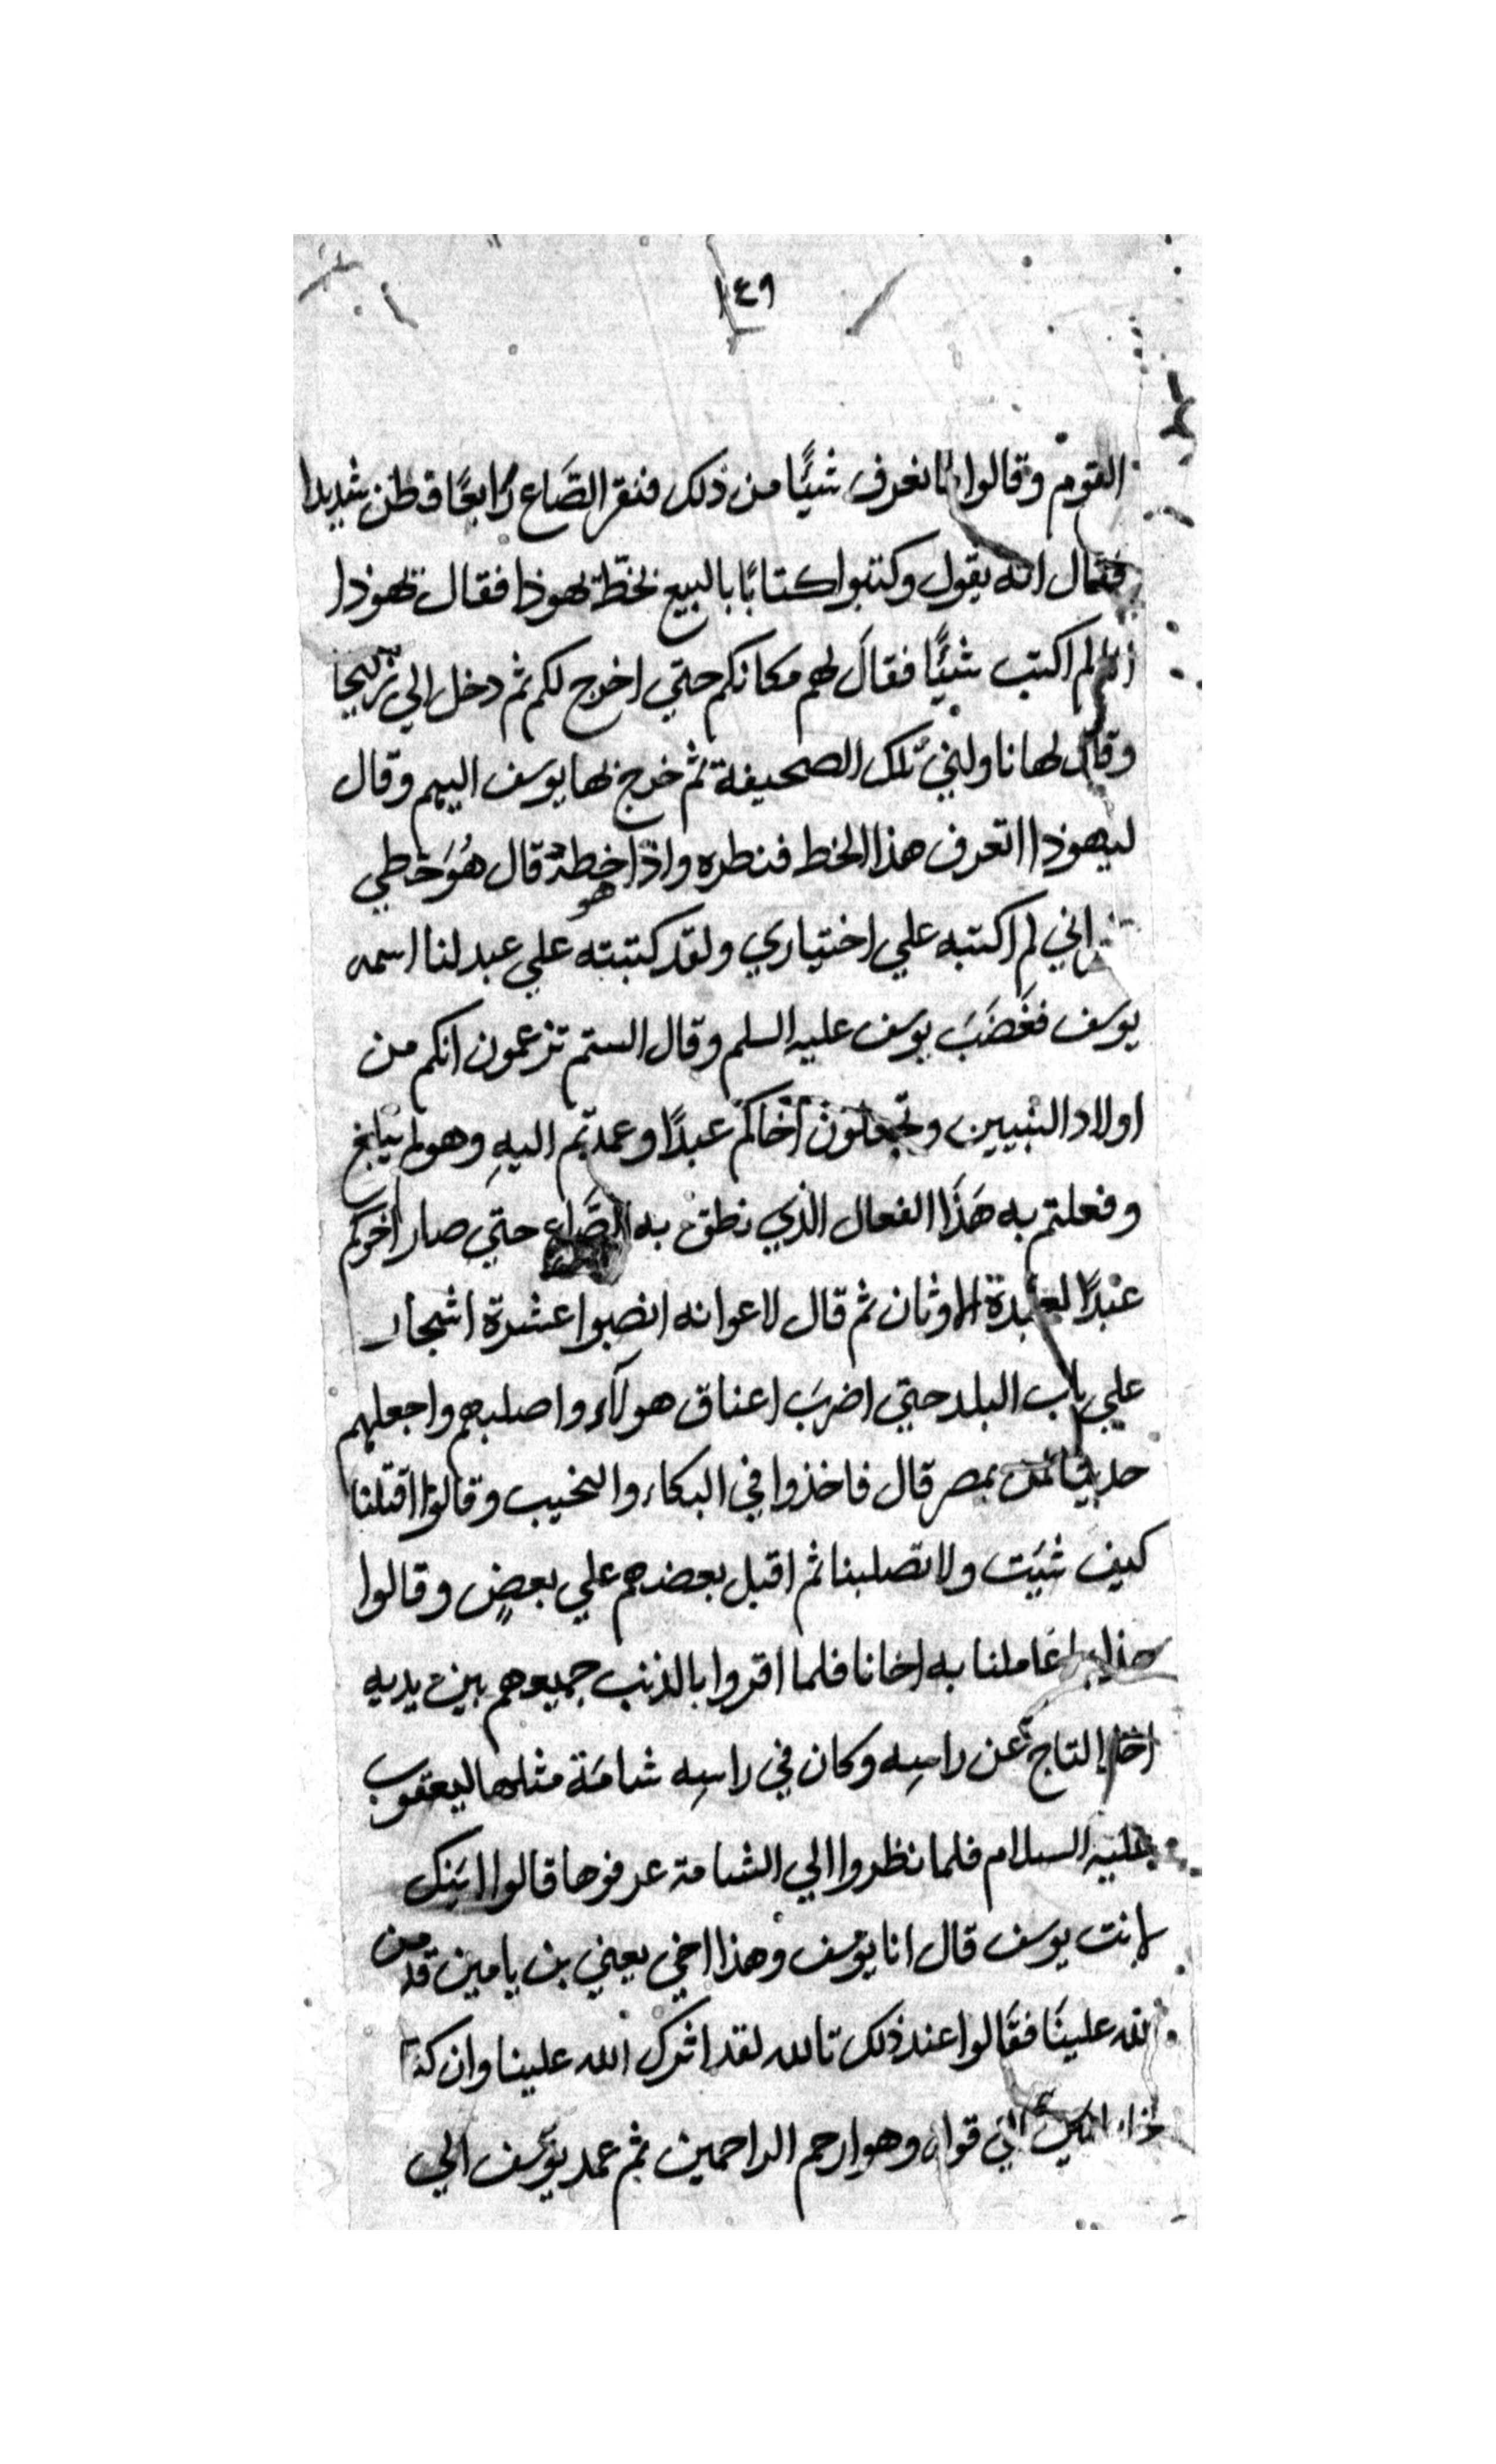 ١٤٩
القوم وقالوا ما نعرف شيًا من ذلك فنقر الصَّاع رَابعًا فطن شديدا
فقال انه يقول وكتبوا كتابًا بالبيع بخطّ يهوذا فقال يهوذا
لم اكتب شيًا فقالَ لهم مكانكم حتي اخرج لكم ثم دخل الي زليخا
وقال لها ناوليني تلك الصحيفة ثم خرج بها يوسف اليهم وقال
ليهوذا اتعرف هذا الخط فنطره واذا هو خطه قال هُوَ خطي
اني لم اكتبه علي اختياري ولقد كتبته علي عبد لنا اسمه
يوسف فغَضَبَ يوسف عليه السلم وقال الستم تزعمون انكم من
اولاد النبيين وتجعلون اخاكم عبدًا وعمدتم اليهِ وهو لم يبلغ
وفعلتم به هَذَا الفعال الذي نطق به الصَّاع حتي صار اخوكم
عبدًا لعبدة الاوثان ثم قال لاعوانه انصبوا عشرة اشجار
علي باب البلد حتي اضربَ اعناق هولآء واصلبهم واجعلهم
حديثا بمصر قال فاخذوا في البكاء والنحيب وقالوا اقتلنا
كيف شيَت ولا تصلبنا ثم اقبل بعضهم علي بعضٍ وقالوا
عاملنا به اخانا فلما اقروا بالذنب جميعهم بين يديه
التاج عن راسِه وكان في راسِه شامَة مثلها ليعقوب
عليه السلام فلما نظروا الي الشامة عرفوها قالوا اينك
لانت يوسف قال انا يوسف وهذا اخي يعني بن يامين قد من
الله علينَا فقَالوا عند ذلك تالله لقد اثرك الله علينا وان كنا
قوله وهو ارحم الراحمين ثم عمد يوسف الي